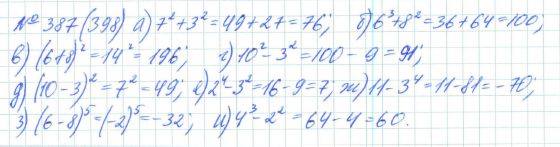 № 387 (398) а) 7² + 3² = 49 + 27 = 76; б) 6³ + 8² = 36 + 64 = 100;
в) (6 + 8)² = 14² = 196; г) 10² - 3² = 100 - 9 = 91;
д) (10 - 3)² = 7² = 49; е) 2⁴ - 3² = 16 - 9 = 7; ж) 11 - 3⁴ = 11 - 81 = -70;
з) (6 - 8)⁵ = (-2)⁵ = -32; и) 4³ - 2² = 64 - 4 = 60.